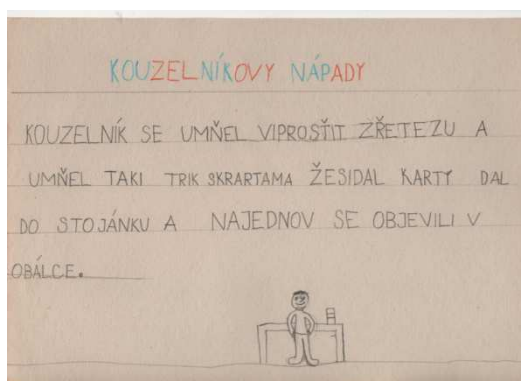 KOUZELNÍKOVY NÁPADY
KOUZELNÍK SE UMŇEL VIPROSŤIT ZŘETEZU A
UMŇEL TAKI TRIK SKRARTAMA ŽESIDAL KARTY DAL
DO STOJÁNKU A NAJEDNOV SE OBJEVILI V
OBÁLCE.